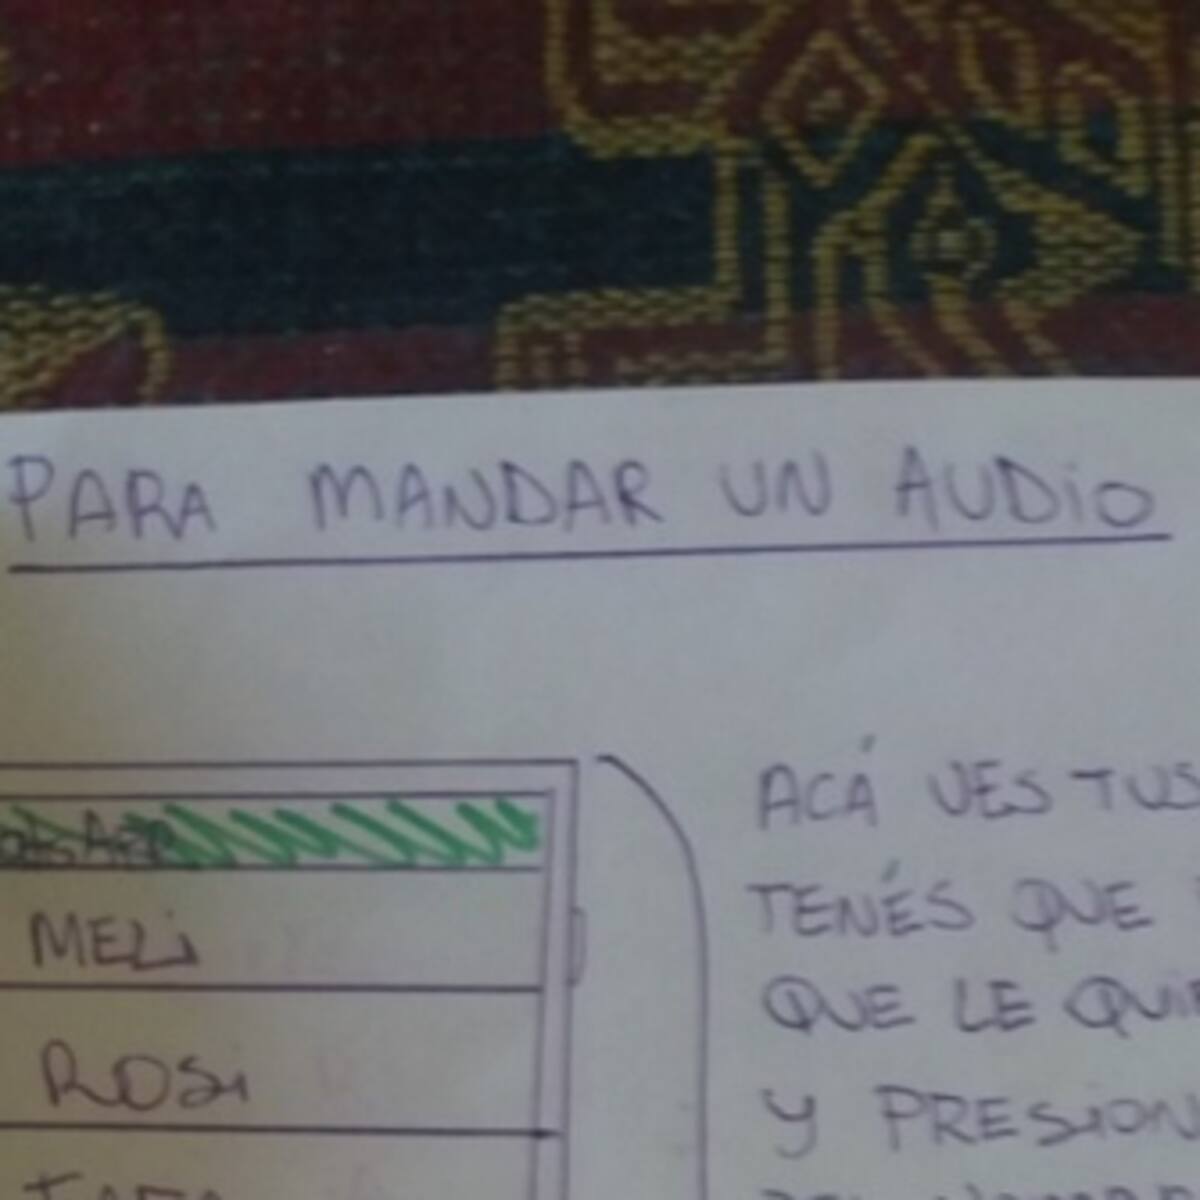 PARA MANDAR UN AUDIO
MELI
ROSI
ACÁ VES TUS
TENÉS QUE
QUE LE
Y